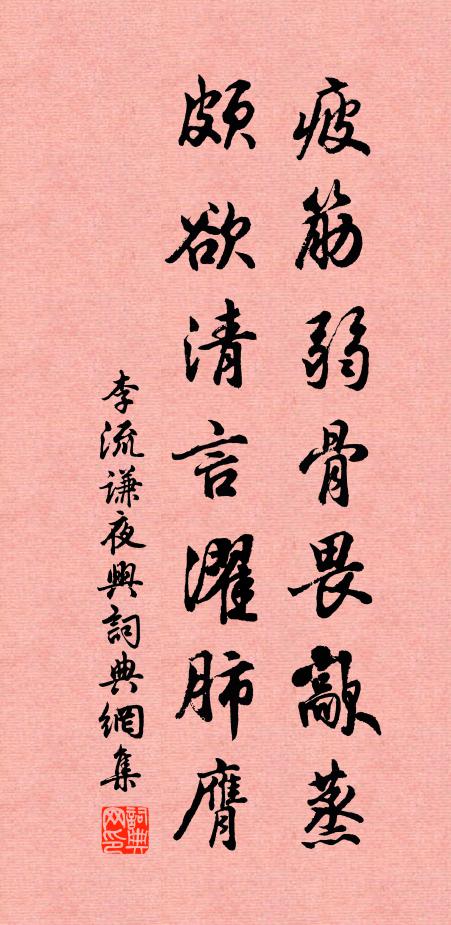 疲筋弱骨畏歊蒸
頗欲清言濯肺膺
李流謙夜興詞典網集
詞典網印